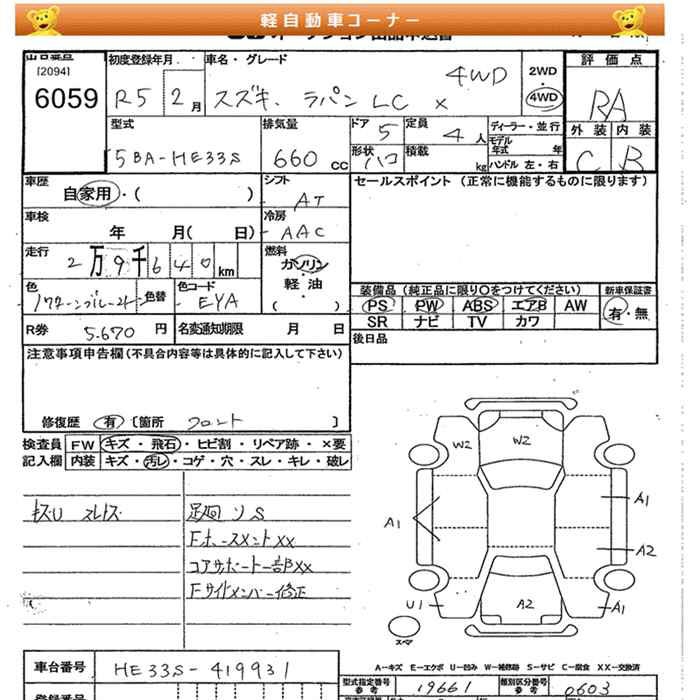 軽自動車コーナー
初度登録年月
車名・グレード
評価点
[2094]
6059
R5 2月
スズキ. ラパン LC X
4WD
2WD
4WD
RA
型式
排気量
ドア 5
定員 4人
ディーラー・並行
モデル年式 年
外装 内装
5BA-HE33S
660 cc
形状 ハコ
積載 kg
ハンドル 左・右
C B
車歴
自家用・( )
シフト
AT
セールスポイント (正常に機能するものに限ります)
車検
年 月( 日)
冷房
AAC
走行
2万9千640km
燃料
ガソリン・軽油
( )
色
色替
色コード
EYA
装備品 (純正品に限り○をつけてください)
新車保証書
PS PW ABS エアB AW
有・無
SR ナビ TV カワ
R券 5.670円
名変通知期限 月 日
後日品
注意事項申告欄(不具合内容等は具体的に記入して下さい)
修復歴 有 [箇所 フロント ]
検査員記入欄
FW キズ・飛石・ヒビ割・リペア跡・×要
内装 キズ・汚レ・コゲ・穴・スレ・キレ・破レ
キズU スレトス
足廻リS
Fホースメント××
コアサポート一部××
Fサイドメンバー修正
W2 W2
A1 A1
A2
U1 A2 A1
スマ
車台番号 HE33S-419931
A-キズ E-エクボ U-凹み W-補修跡 S-サビ C-腐食 XX-交換済
型式指定番号 参考 19661
類別区分番号 参考 0603